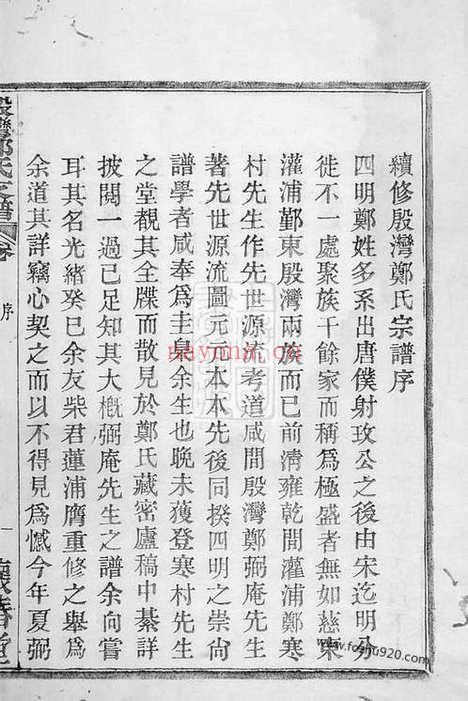 續修殷灣鄭氏宗譜序
四明鄭姓多系出唐僕射玫公之後由宋迄明分
徙不一處聚族千餘家而稱爲極盛者無如慈東
灌浦鄞東殷灣兩族而已前清雍乾間灌浦鄭寒
村先生作先世源流考道咸間殷灣鄭弼庵先生
著先世源流圖元元本本先後同揆四明之崇尙
譜學者咸奉爲圭臬余生也晚未獲登寒村先生
之堂覩其全牒而散見於鄭氏藏密廬稿中綦詳
披閱一過已足知其大概弼庵先生之譜余向嘗
耳其名光緒癸巳余友柴君蓮浦膺重修之舉爲
余道其詳竊心契之而以不得見爲憾今年夏弼
鄭氏宗譜
序
一
nayona.cn
www.foshu920.com